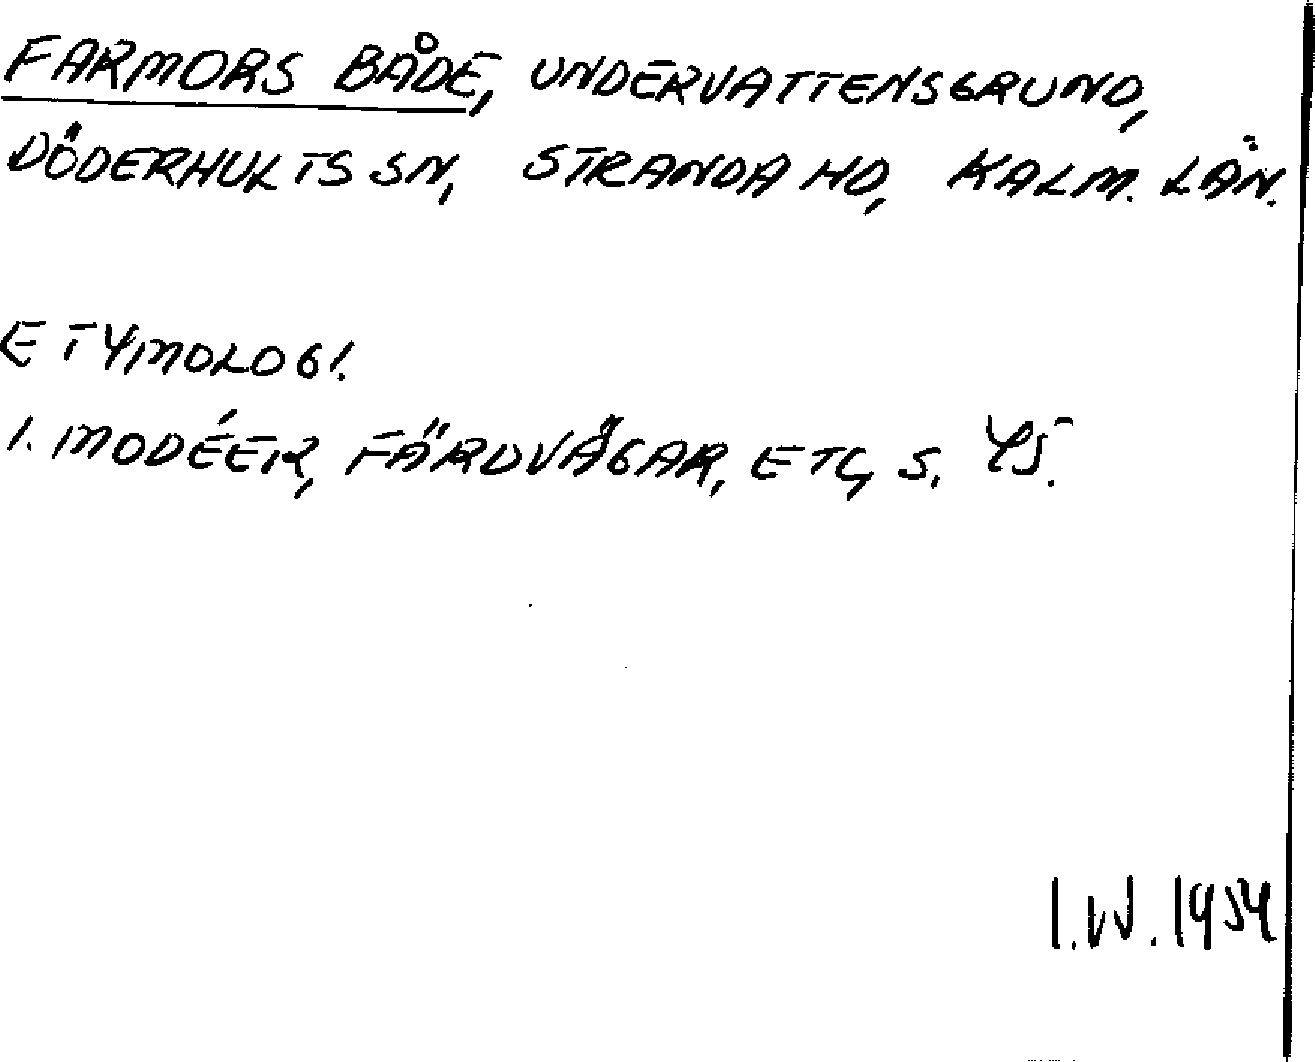 FARMORS BÅDE, UNDERVATTENSGRUND,
DÖDERHULTS SN, STRANDA HD, KALM. LÄN.
ETYMOLOGI.
I. MODÉER, FÄRDVÄGAR, ETC, S. 45.
I.W. 1954